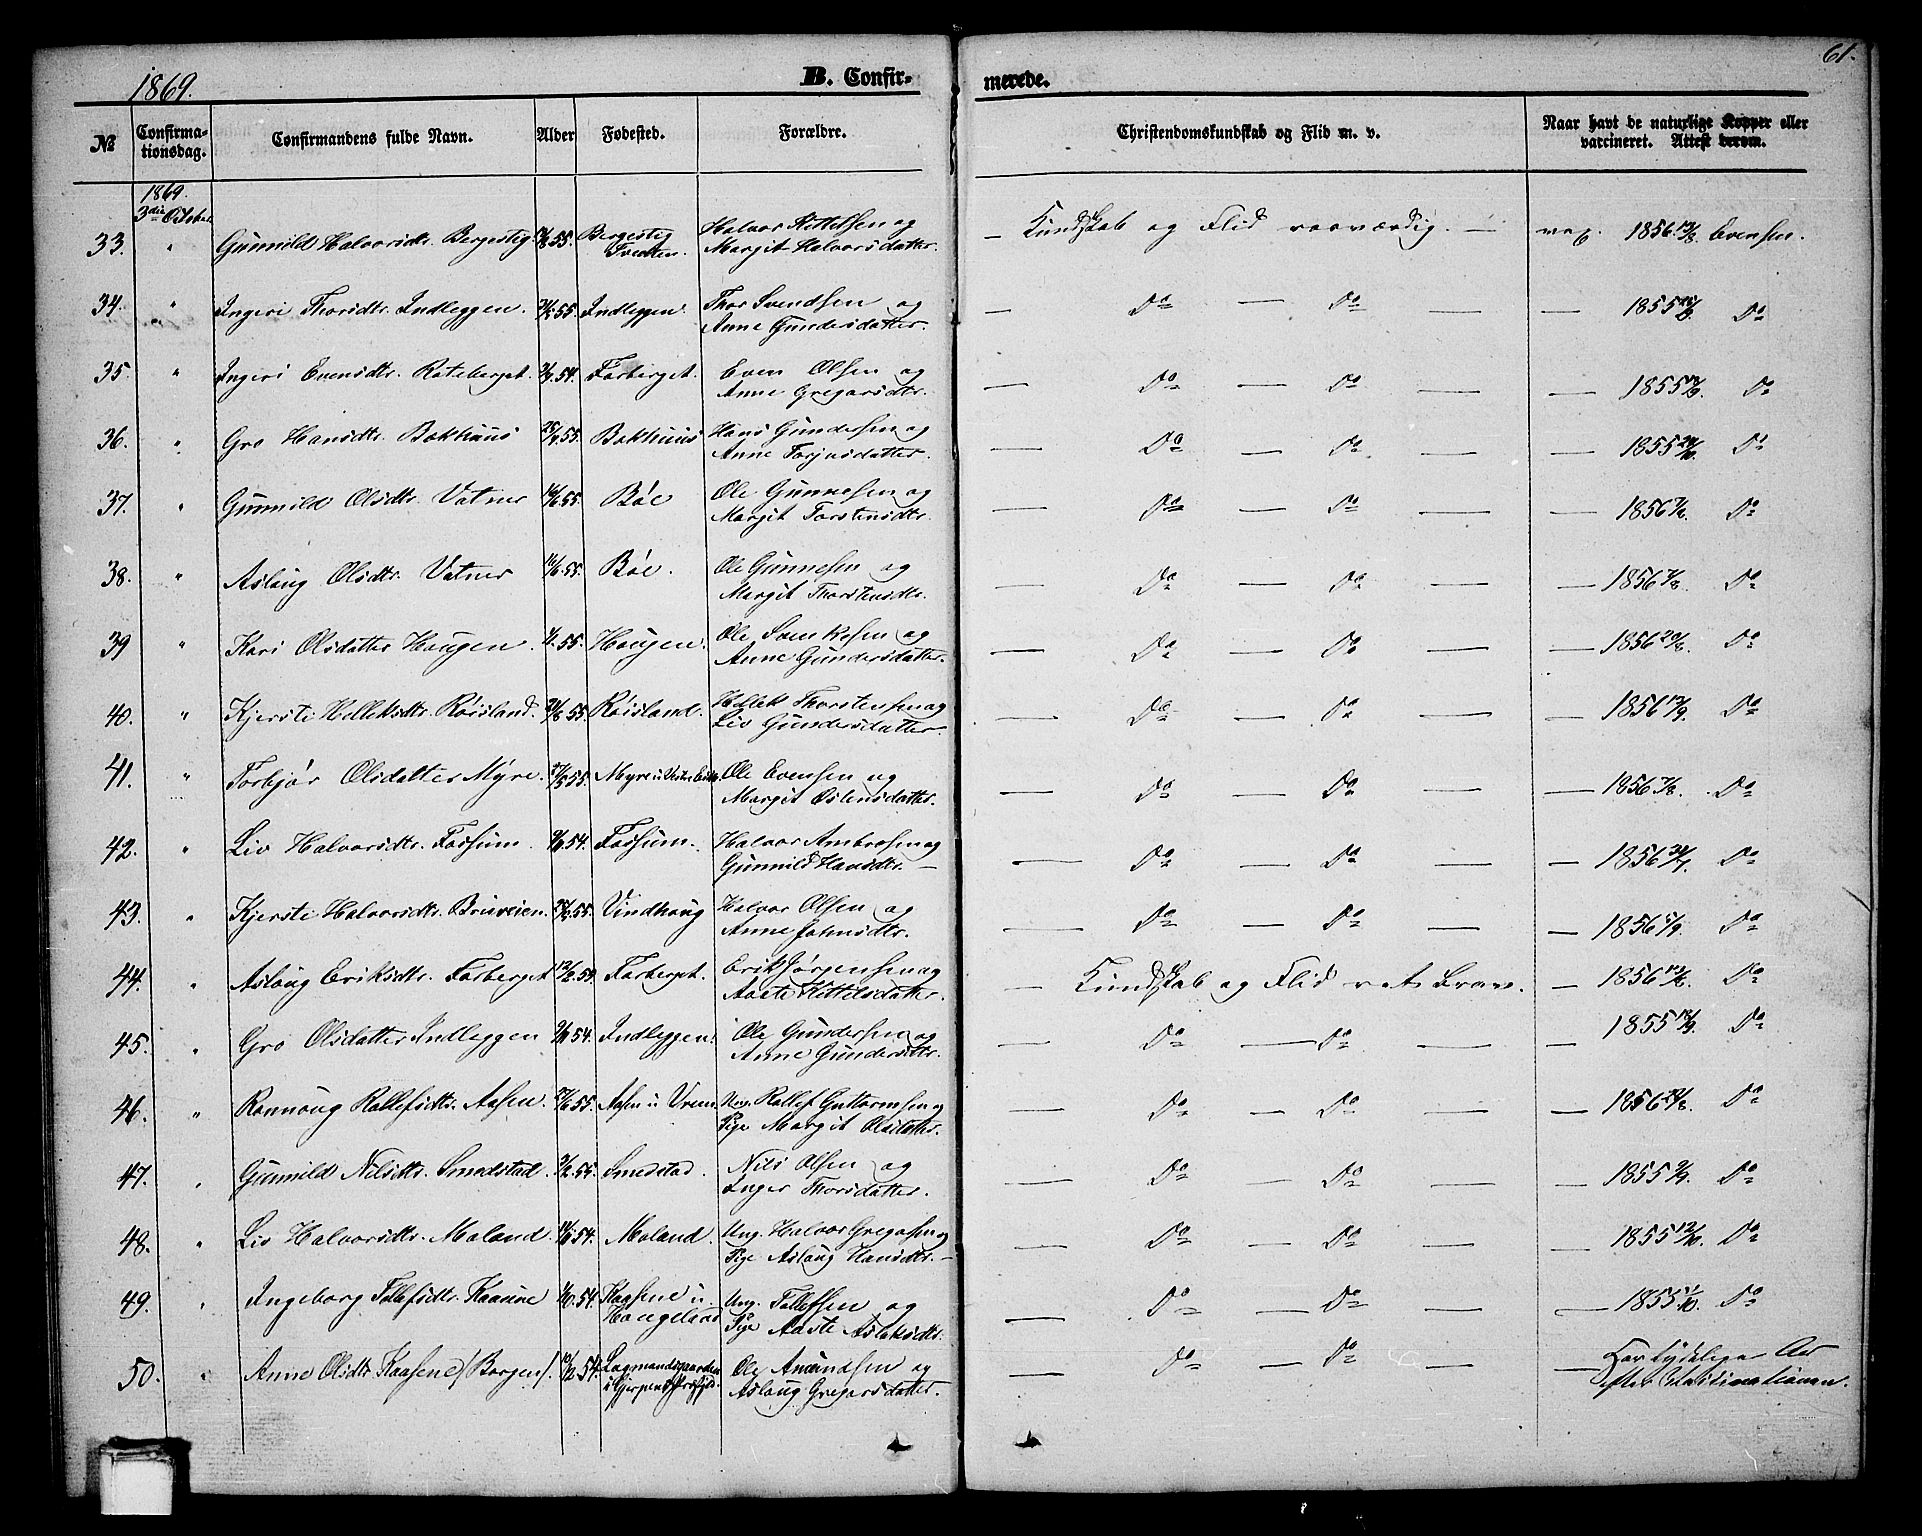 61.
1869.
B. Confir-
merede.
№
Confirma-
tionsdag.
Confirmandens fulde Navn.
Alder
Fødested.
Forældre.
Christendomskundskab og Flid m. v.
Naar havt de naturlige Kopper eller
vaccineret. Attest derom.
1869.
3die October
33. " Gunnild Halvorsdtr. Bergestig 55. Bergestig Halvor Kittelsen og
Tveten. Margit Halvorsdatter.
— Kundskab og Flid roesværdig. — vax. 1856 Evensen.
34. " Ingeri Thorsdtr. Indleggen. 55. Indleggen. Thor Svendsen og
Anne Gundersdatter.
Do — Do — — 1855 Do
35. " Ingeri Evensdtr. Roteberget. 54. Forberget. Even Olsen og
Anne Gregarsdtr.
— Do — Do — — 1855 Do
36. " Gro Hansdtr. Bakhuus 55. Bakhuus Hans Gundersen og
Anne Torjusdatter.
— Do — Do — — 1855 Do
37. " Gunnild Olsdtr. Vatner 55. Bøe Ole Gunnesen og
Margit Torstensdtr.
— Do — Do — — 1856 Do
38. " Aslaug Olsdtr. Vatner 55. Bøe. Ole Gunnesen og
Margit Thorstensdtr.
— Do — Do — — 1856 Do
39 " Kari Olsdatter Haugen. 55. Haugen. Ole Svenkesen og
Anne Gundersdatter.
— Do — Do — — 1856 Do
40. " Kjerste Helleksdtr. Røisland. 55. Røisland. Hellek Thorstensen og
Liv Gundersdatter
— Do — Do — — 1856 Do
41. " Torbjør Olsdatter Myre. 55. Myre Ole Evensen og
Margit Ostensdatter.
— Do — Do — — 1856 Do
42. " Liv Halvorsdtr. Fossum. 54. Fossum. Halvor Ambrosen og
Gunnild Hansdtr. —
— Do — Do — — 1856 Do
43. " Kjerste Halvorsdtr. Bruveien. 55. Vindhaug Halvor Olsen og
Anne Johnsdtr.
Do — Do — — 1856 Do
44. " Aslaug Eriksdtr. Forberget Forberget. Erik Jørgensen og
Aaste Kittelsdatter.
— Kundskab og Flid ret Brav. — 1856 Do
45. " Gro Olsdatter Indleggen 54. Indleggen. Ole Gundersen og
Anne Gundersdtr.
— Do — Do — — 1855 Do
46. " Rannaug Rollefsdtr. Aasen. 55. Aasen Ung. Rollef Guttormsen og
Pige Margit Olsdatter.
— Do — Do — — 1856 Do
47. " Gunnild Nilsdtr. Smedstad. 55. Smedstad. Nils Olsen og
Inger Thorsdatter.
— Do — Do — — 1855 Do
48. " Liv Halvorsdtr. Moland. 54. Moland. Ung. Halvor Gregarsen og
Pige Aslaug Hansdtr. —
— Do — Do — — 1855 Do
49. " Ingeborg Tollefsdtr. 54. Kaasene u Ung. Tollefsen og
Haugeland Pige Aaste Aslaksdtr.
— Do — Do — — 1855 Do
50. " Anne Olsdtr. Kaasene /Borgen/. 54. Lagmandsgaarden Ole Amundsen og
i Gjerpens Præstegj. Aslaug Gregersdatter.
Do — Do — — Har tydelige Ar
efter Vaksinationen.